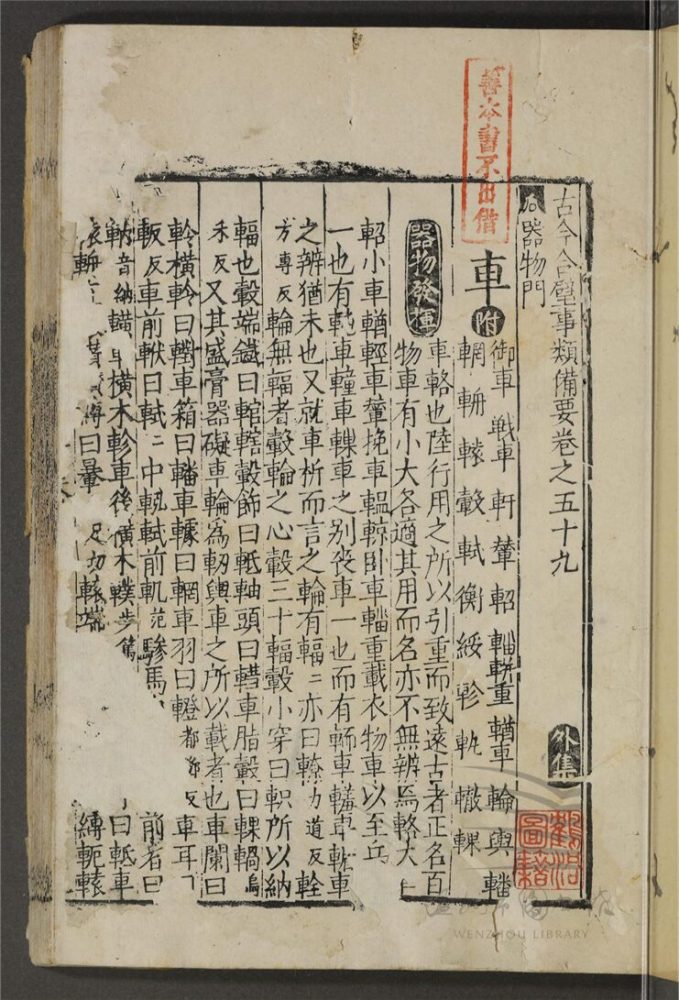 善本書不出借
古今合璧事類備要卷之五十九
外集
器物門
車
附
御車 戰車 軒 輦 軺 輜軿重 輶車 輪 輿 轓
輞 軿 轅 轂 軾 衡 綏 軫 軏 轍 輠
器物發揮
車輅也陸行用之所以引重而致遠古者正名百
物車有小大各適其用而名亦不無辨焉輅大
軺小車輶輕車輦挽車輼輬臥車輜重載衣物車以至丘
一也有 車 車 車之别役車一也而有 車 車 車
之辨猶未也又就車析而言之輪有輻二亦曰轑力道反輇
方專反輪無輻者轂輪之心轂三十輻轂小穿曰軹所以納
輻也轂端鐵曰輨轄轂飾曰軝軸頭曰轊車脂轂曰輠輞烏
禾反又其盛膏器礙車輪為軔輿車之所以載者也車闌曰
軨橫軨曰 車箱曰轓車 曰輞車羽曰 都鄧反車耳
軓反車前軾曰軾二中 軾前軓范驂馬 前者曰
軜音納 橫木軫車後橫木轐步篤 曰軝車
縛曰 轅端 縛軛轅
鶴沿圖籍
WENZHOU LIBRARY